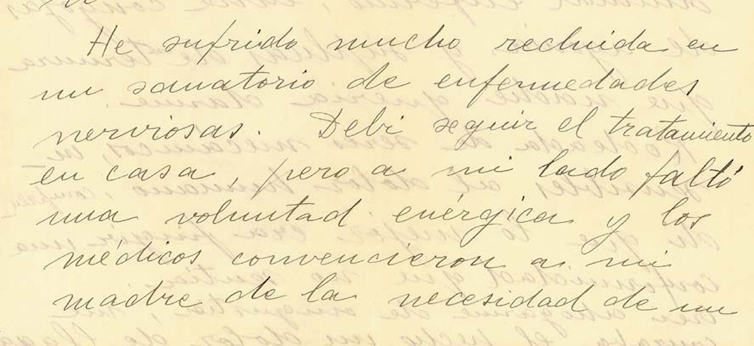 He sufrido mucho recluida en
un sanatorio de enfermedades
nerviosas. Debí seguir el tratamiento
en casa, pero a mi lado faltó
una voluntad enérgica y los
médicos convencieron a mi
madre de la necesidad de un